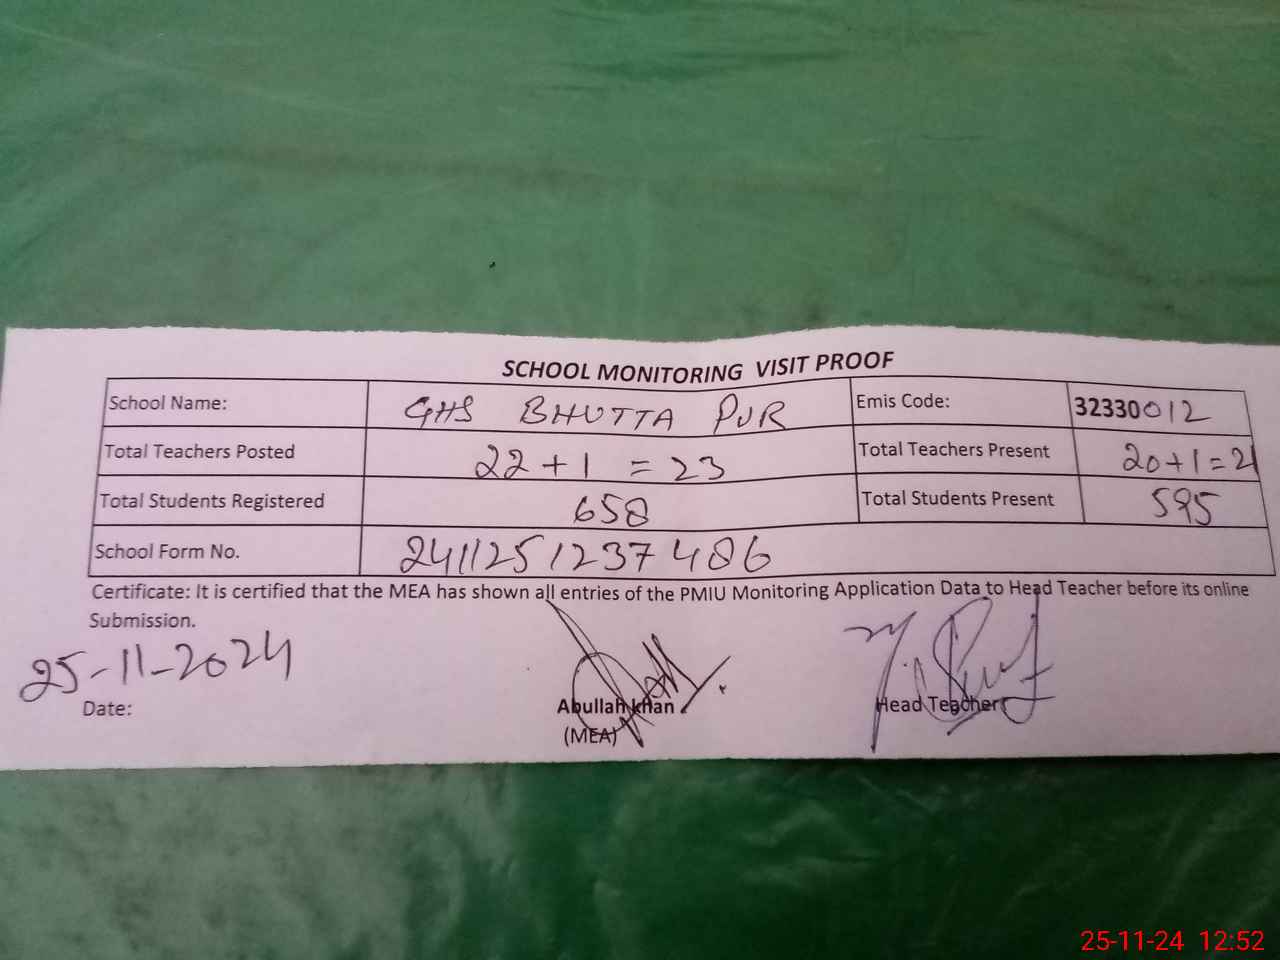 SCHOOL MONITORING VISIT PROOF
School Name: GHS BHUTTA PUR Emis Code: 32330012
Total Teachers Posted 22+1 = 23 Total Teachers Present 20+1=21
Total Students Registered 658 Total Students Present 595
School Form No. 2411251237486
Certificate: It is certified that the MEA has shown all entries of the PMIU Monitoring Application Data to Head Teacher before its online
Submission.
25-11-2024
Date: Abullah khan Head Teacher
(MEA)
25-11-24 12:52